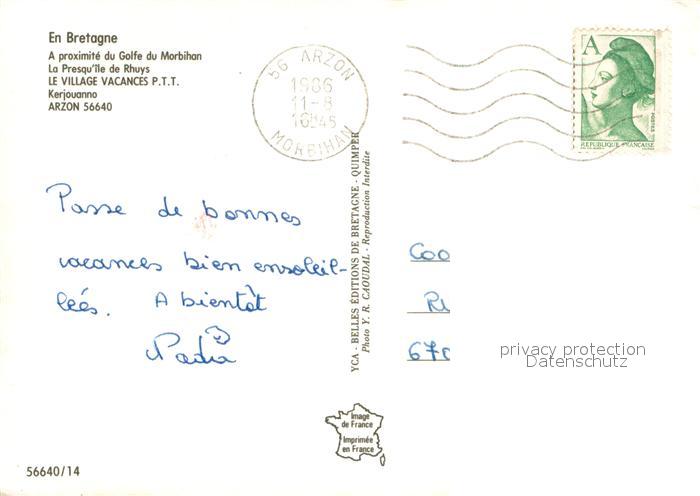 En Bretagne
A proximité du Golfe du Morbihan
La Presqu'île de Rhuys
LE VILLAGE VACANCES P.T.T.
Kerjouanno
ARZON 56640
56 ARZON
1986
11-8
16H45
MORBIHAN
A
POSTES
REPUBLIQUE FRANÇAISE
Passe de bonnes
vacances bien ensoleil-
leés. A bientôt
Nadia
YCA - BELLES ÉDITIONS DE BRETAGNE - QUIMPER
Photo Y. R. CAOUDAL - Reproduction Interdite
Coo
Ri
670
privacy protection
Datenschutz
Image
de France
Imprimée
en France
56640/14